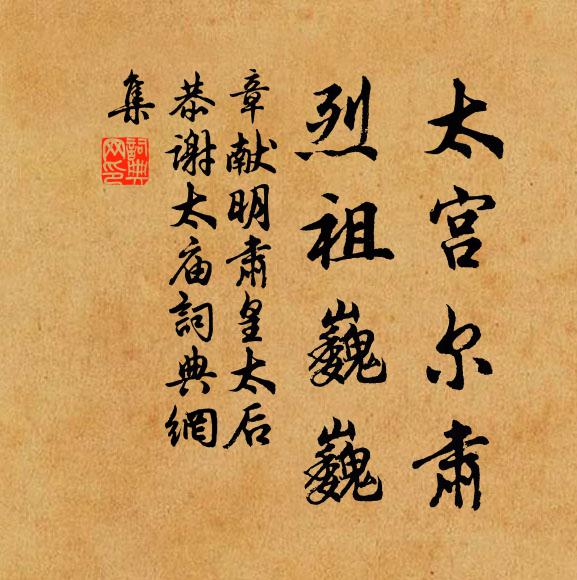 太宫尔肃
烈祖巍巍
章献明肃皇太后
恭谢太庙詞典網
集
詞典
网印